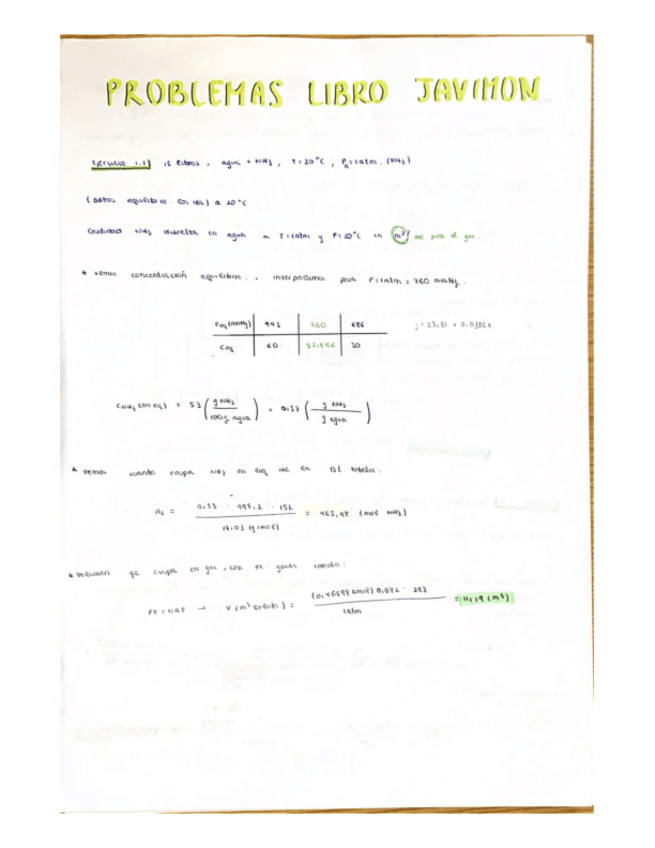 PROBLEMAS LIBRO JAVIMON
Ejercicio 1.1) 15 litros, agua + NH3, T=20°C, Pn=1atm. (NH3)
(Datos equilibrio. ) a 20°C
Cantidad NH3 disuelta en agua a T=1atm y P=20°C en m³ para el gas.
* vemos concentración equilibrio: , interpolamos para P=1atm = 760 mmHg.
Peq(mmHg) 945 760 686
Ceq 60 52,846 50
CNH3 (en eq) = 53 (g NH3 / 100g agua) = 0,53 (g NH3 / g agua)
* vemos cuanto ocupa NH3 en liq en 15L totales:
ns = 0,53 · 998,2 · 15L / 17,03 (g/mol) = 465,98 (mol NH3)
* volumen que ocupa en gas, con ec. gases ideales:
PV = nRT → V (m³ soluto) = (0,46598 kmol) 0,082 · 293 / 1atm = 11,19 (m³)